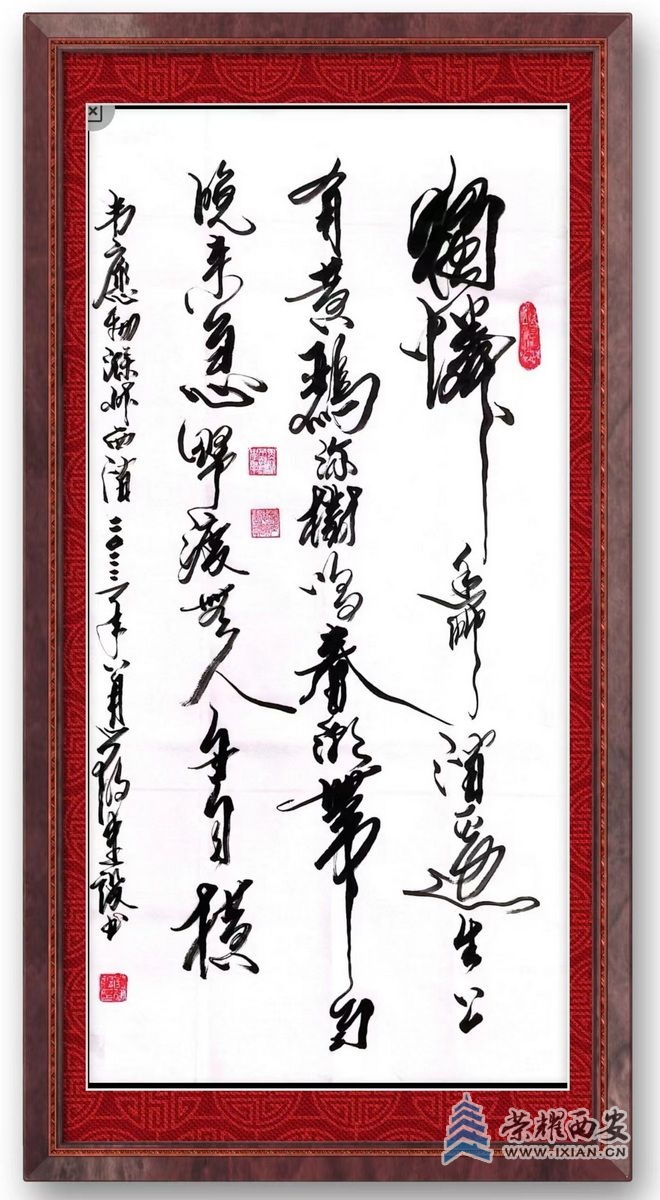 獨憐幽草涧邊生上
有黄鹂深樹鳴春潮帶雨
晚来急野渡無人舟自横
韦應物滁州西涧二〇二三年八月建設书
荣耀西安
WWW.IXIAN.CN